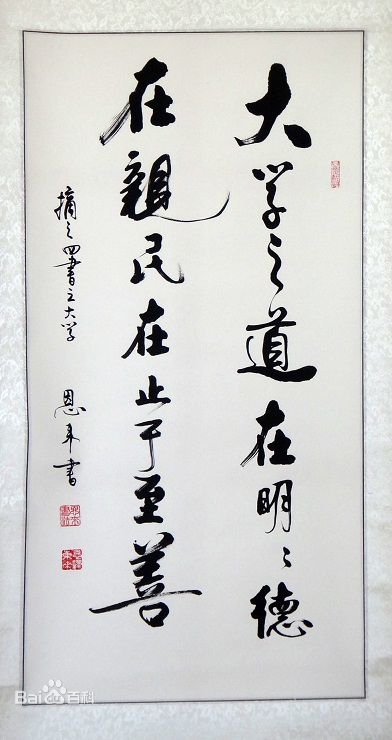 大学之道在明〻德
在親民在止于至善
摘之四書之大学
恩 書
Bai du 百科